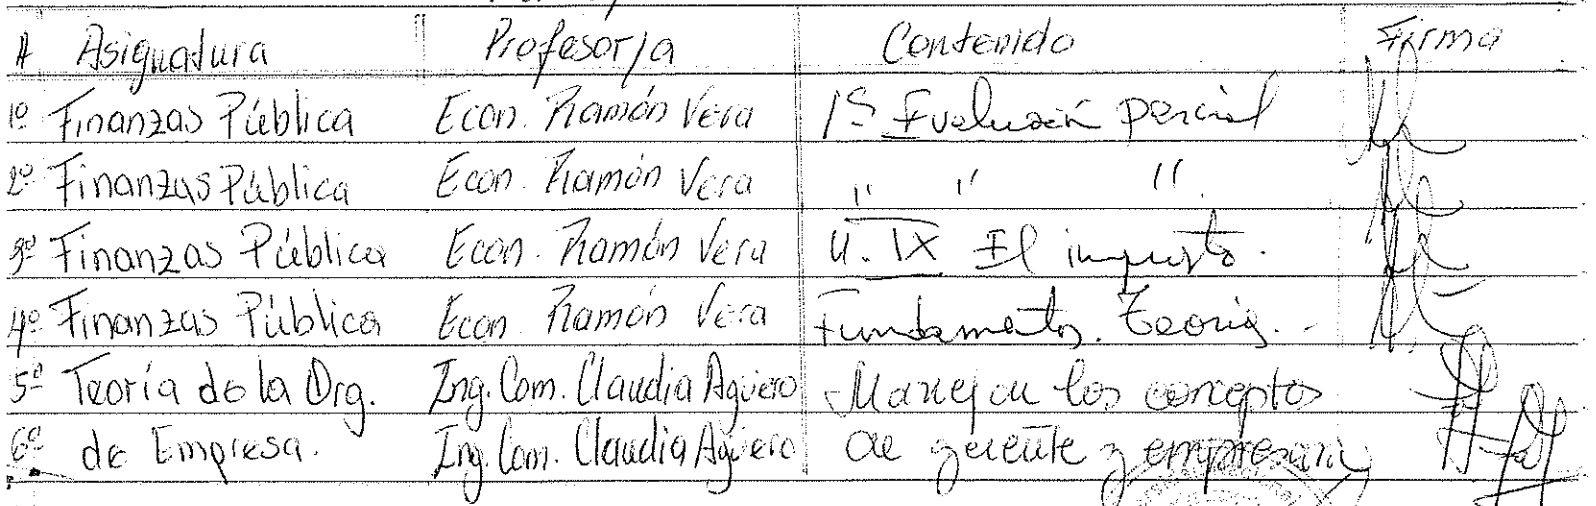 # Asignatura Profesor/a Contenido Firma
1º Finanzas Pública Econ. Ramón Vera 1ª Evaluación parcial
2º Finanzas Pública Econ. Ramón Vera " " "
3º Finanzas Pública Econ. Ramón Vera U. IX El impuesto.
4º Finanzas Pública Econ. Ramón Vera Fundamentos. Teoria.-
5º Teoría de la Org. Ing. Com. Claudia Agüero - Manejar los conceptos
6º de Empresa. Ing. Com. Claudia Agüero de gerente y empresario